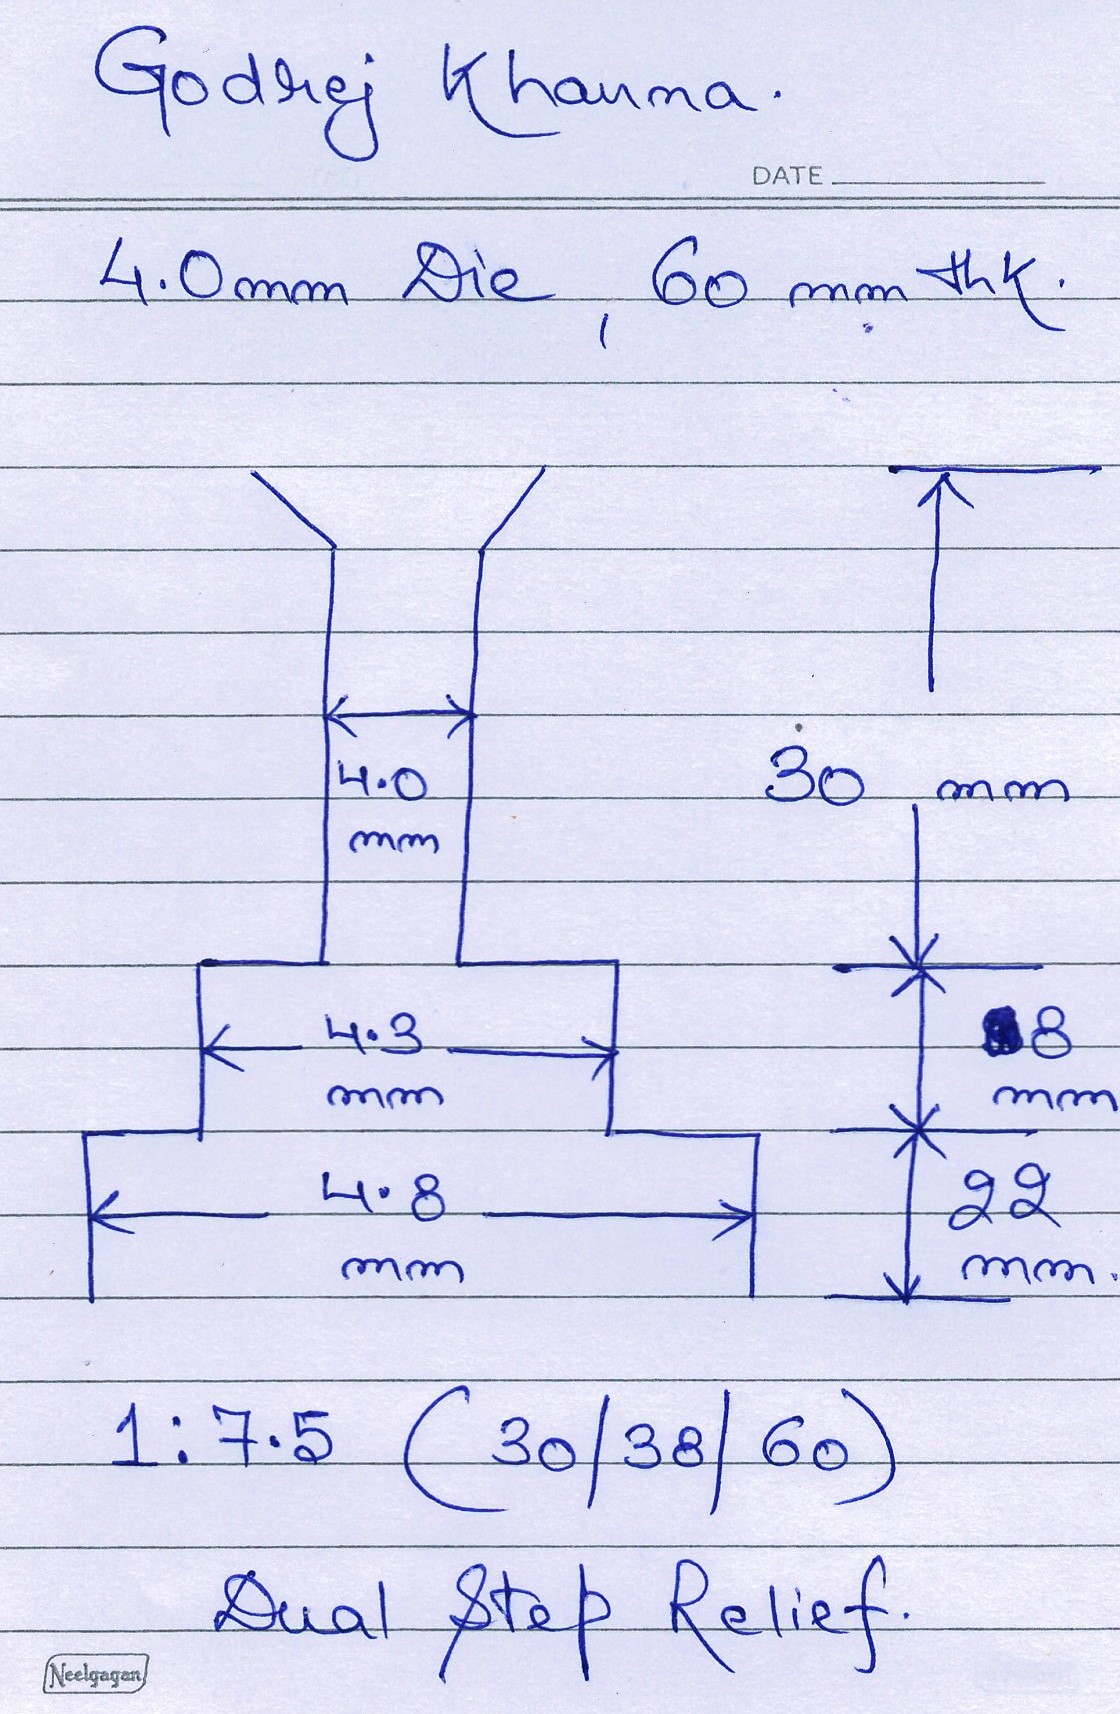 Godrej Khanna.
DATE
4.0mm Die, 60 mm thk.
4.0
mm
30 mm
4.3
mm
8
mm
4.8
mm
22
mm.
1:7.5 (30/38/60)
Dual Step Relief.
Neelgagan